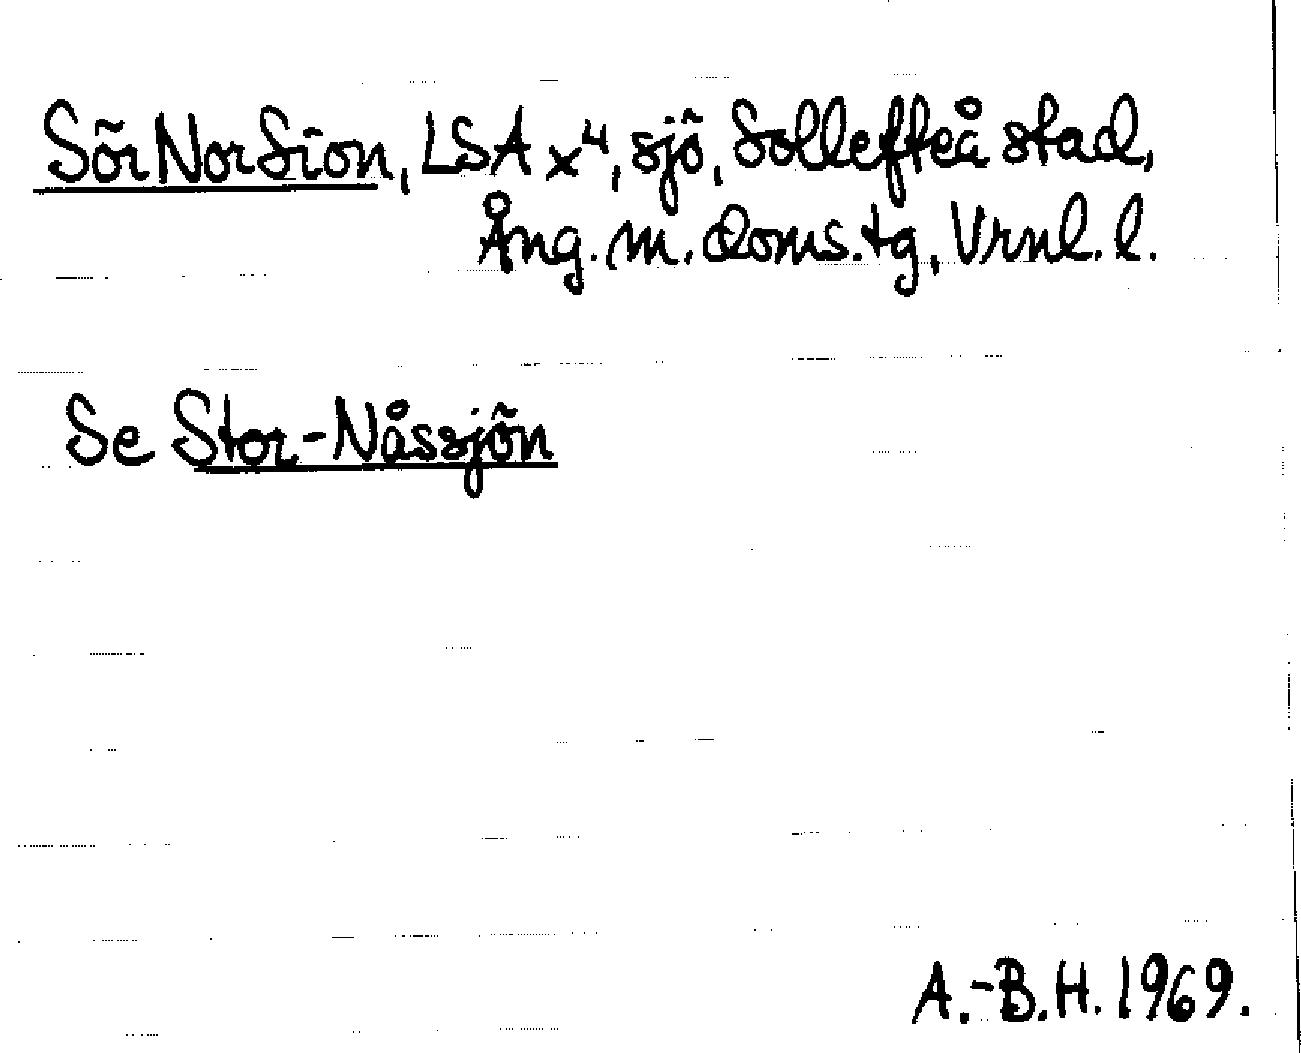 Sör Nor Sion, LSA x⁴, sjö, Sollefteå stad,
Ång. m. doms. tg, Vrnl. l.
Se Stor-Nåssjön
A.-B.H. 1969.